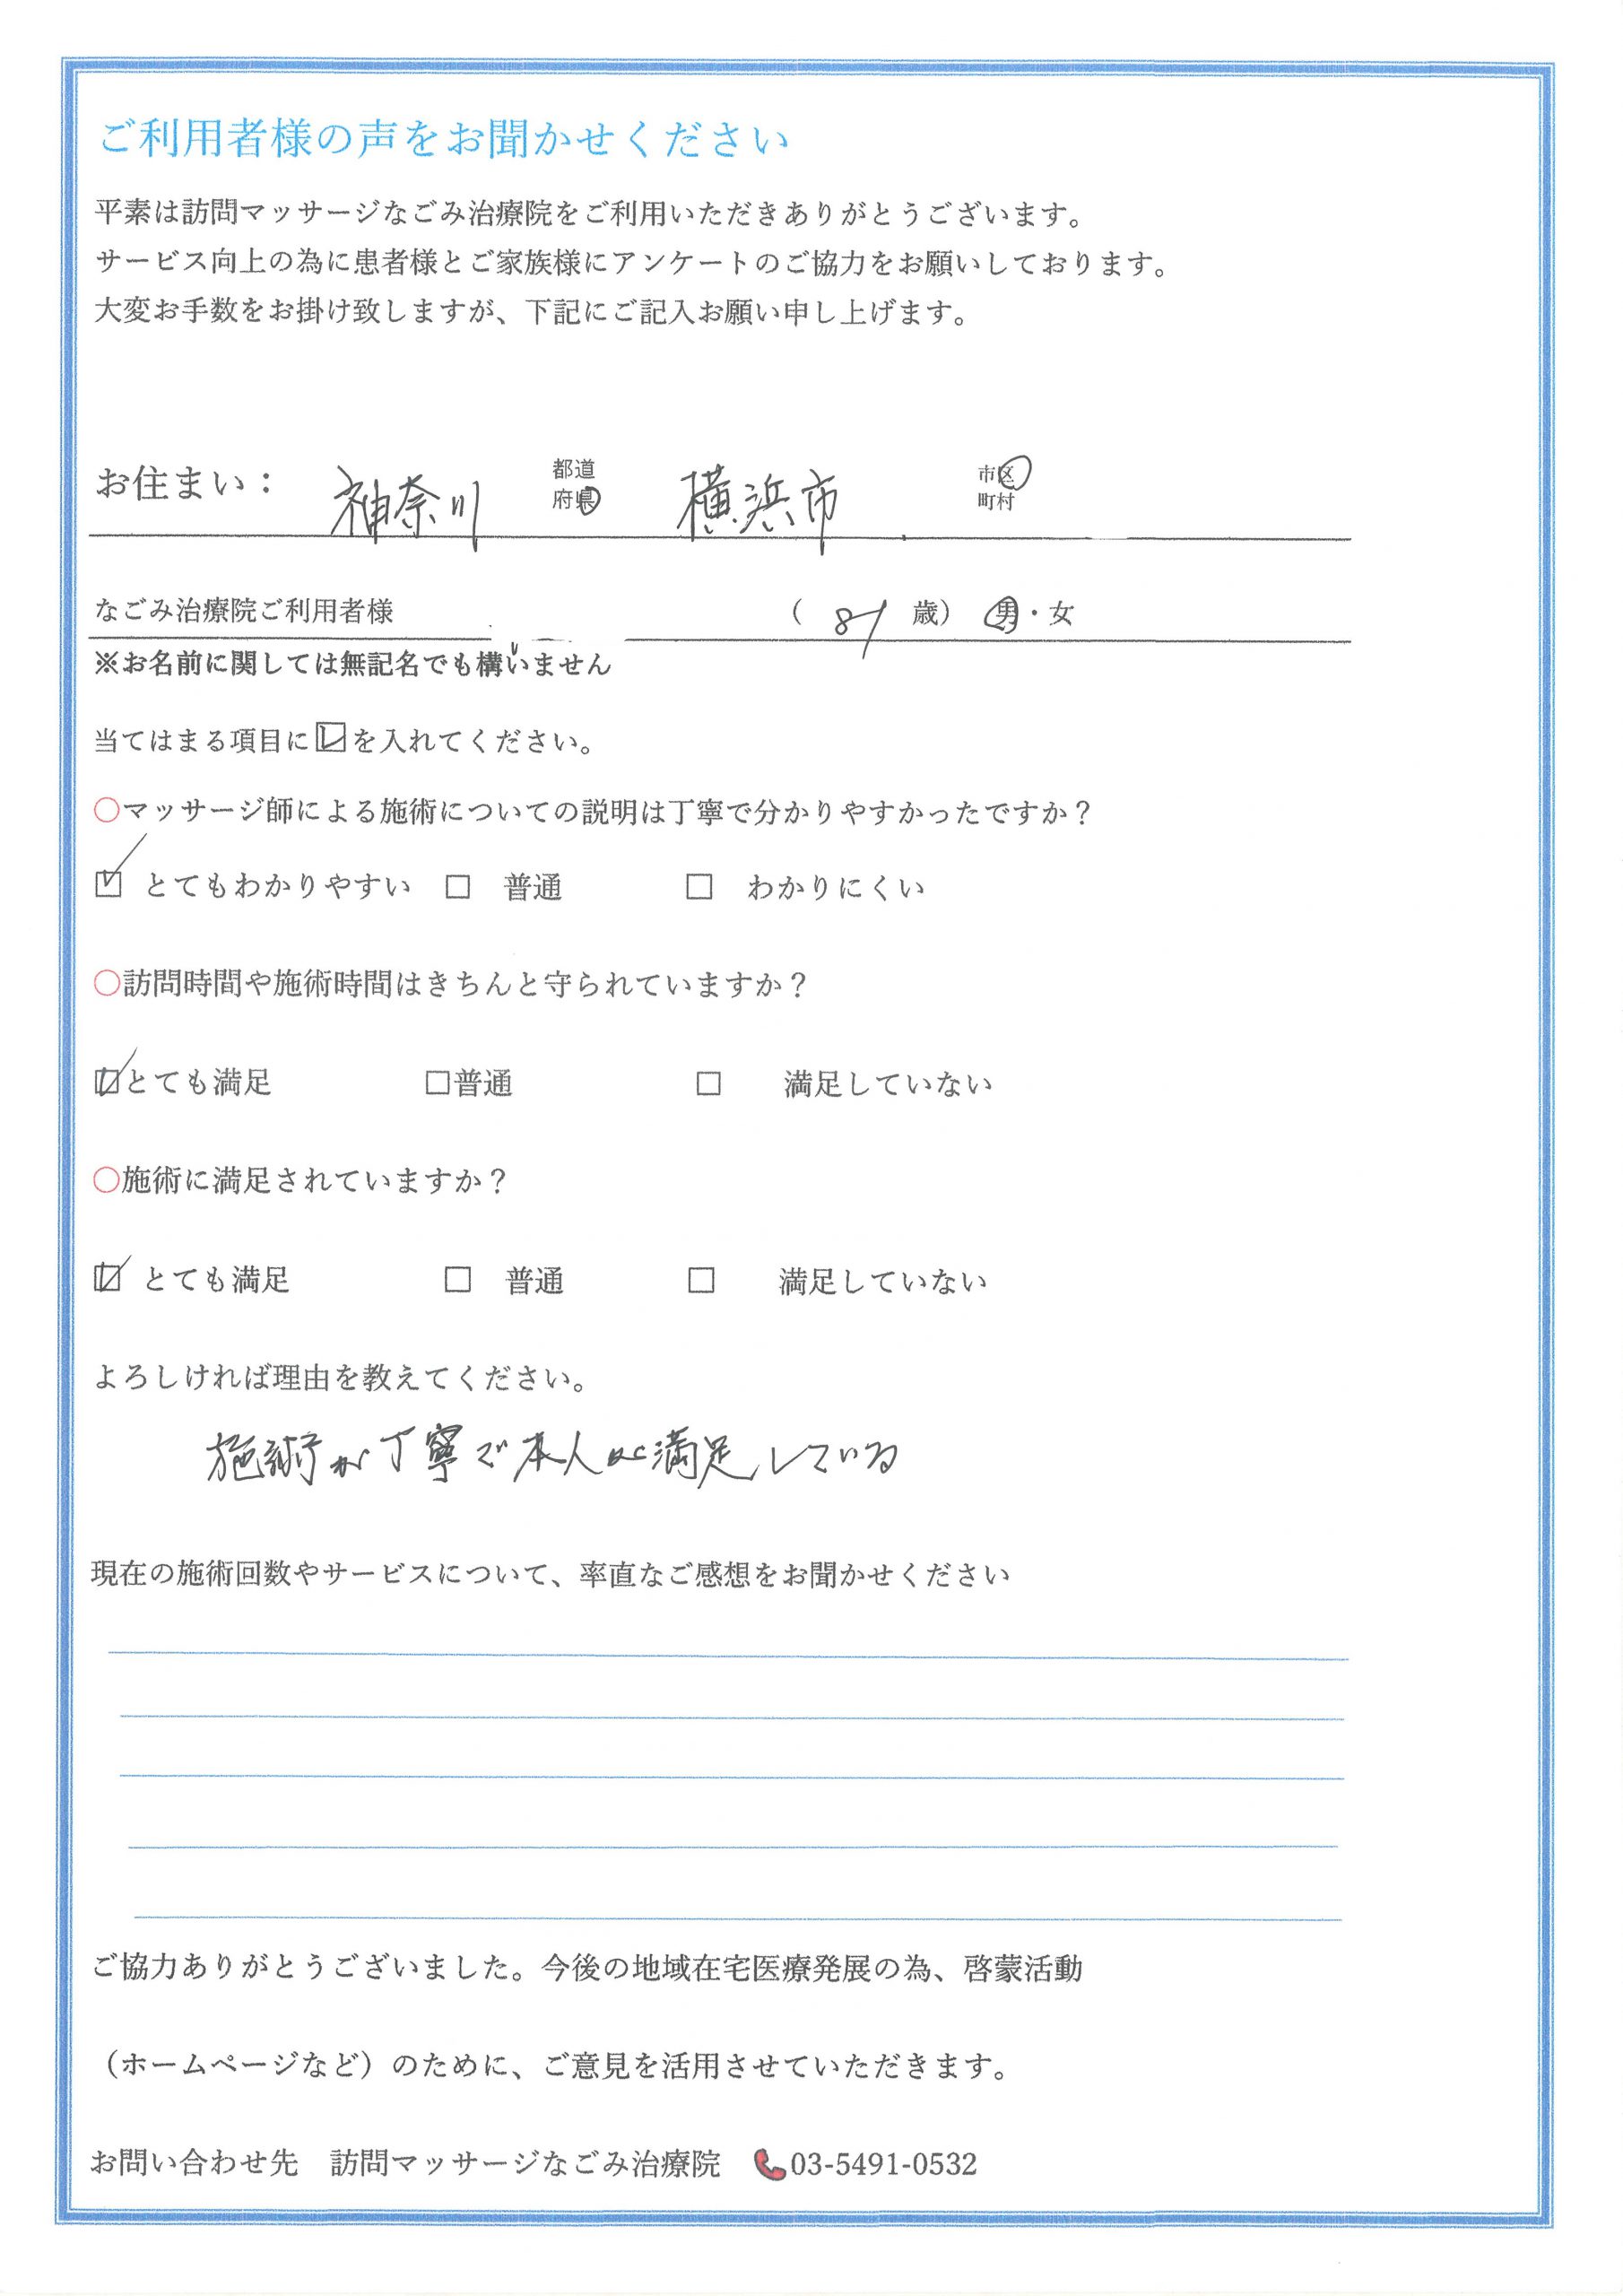 ご利用者様の声をお聞かせください
平素は訪問マッサージなごみ治療院をご利用いただきありがとうございます。
サービス向上の為に患者様とご家族様にアンケートのご協力をお願いしております。
大変お手数をお掛け致しますが、下記にご記入お願い申し上げます。
お住まい： 神奈川 都道府県 横浜市 市区町村
なごみ治療院ご利用者様 （ 87 歳） 男・女
※お名前に関しては無記名でも構いません
当てはまる項目に☑を入れてください。
○マッサージ師による施術についての説明は丁寧で分かりやすかったですか？
☑ とてもわかりやすい □ 普通 □ わかりにくい
○訪問時間や施術時間はきちんと守られていますか？
☑とても満足 □普通 □ 満足していない
○施術に満足されていますか？
☑ とても満足 □ 普通 □ 満足していない
よろしければ理由を教えてください。
施術が丁寧で本人は満足している
現在の施術回数やサービスについて、率直なご感想をお聞かせください
ご協力ありがとうございました。今後の地域在宅医療発展の為、啓蒙活動
（ホームページなど）のために、ご意見を活用させていただきます。
お問い合わせ先 訪問マッサージなごみ治療院 03-5491-0532